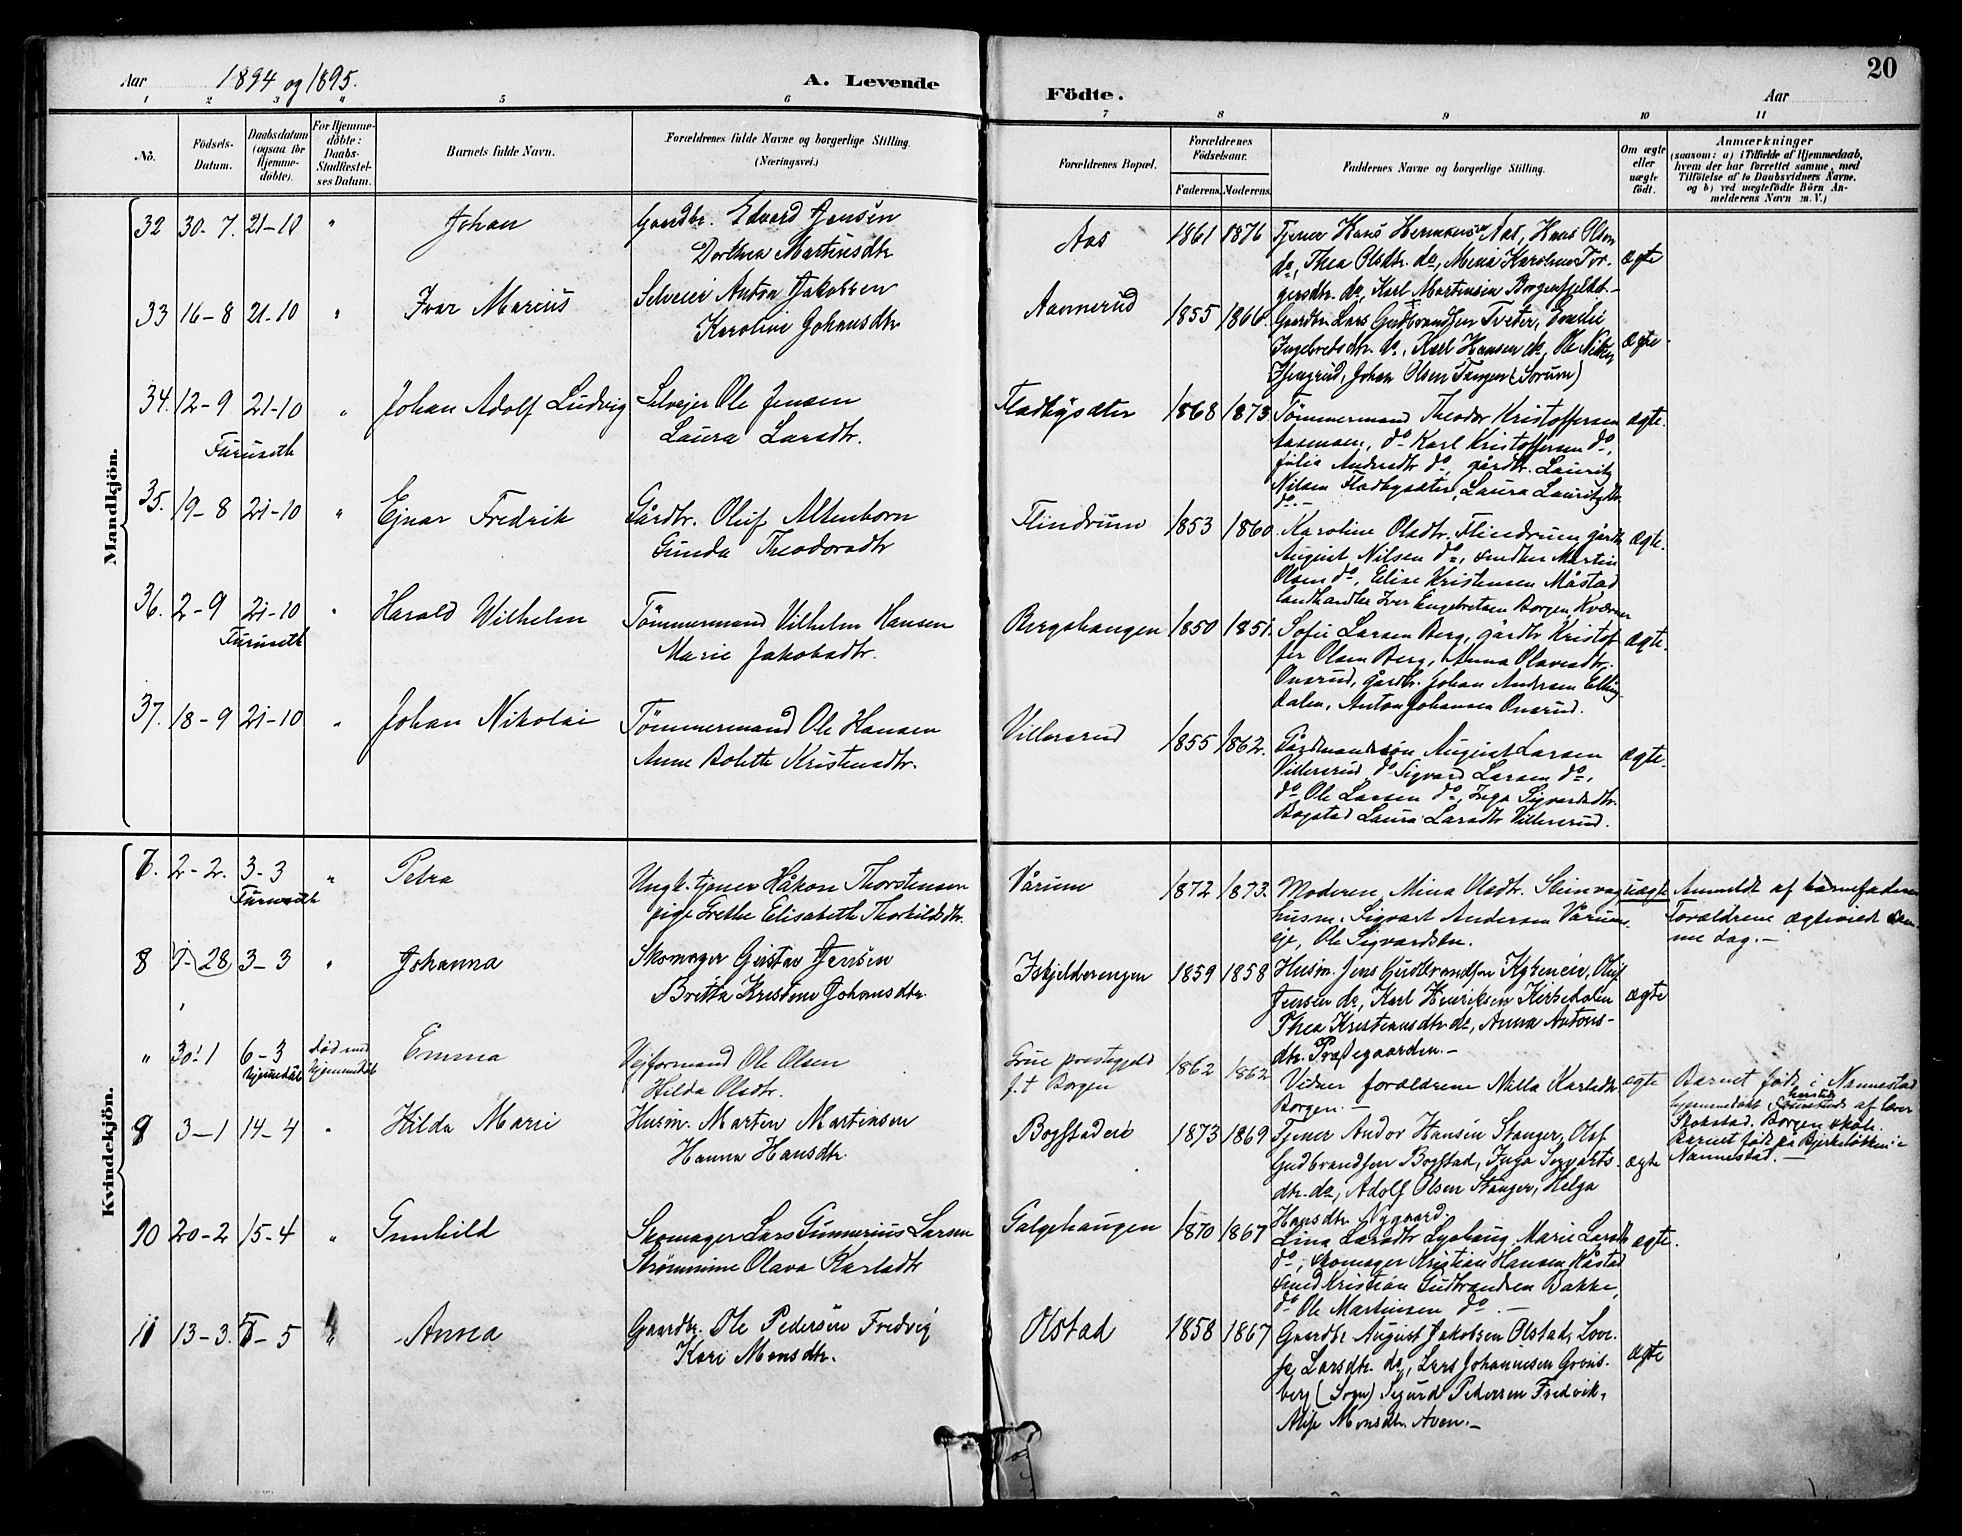 Aar 1894 og 1895.
A. Levende
Födte.
Aar
20
1 2 3 4 5 6 7 8 9 10 11
No.
Födsels-
Datum.
Daabsdatum
(ogsaa for
Hjemme-
döbte).
For Hjemme-
döbte:
Daabs-
Stadfæstel-
ses Datum.
Barnets fulde Navn.
Forældrenes fulde Navne og borgerlige Stilling.
(Næringsvei.)
Forældrenes Bopæl.
Forældrenes
Födselsaar.
Faderens. Moderens.
Faddernes Navne og borgerlige Stilling.
Om ægte
eller
uægte
födt.
Anmærkninger
(saasom: a) i Tilfælde af Hjemmedaab,
hvem der har forrettet samme, med
Tilföielse af to Daabsvidners Navne.
og b) ved uægtefödte Börn An-
melderens Navn m. V.)
Mandkjön.
32 30-7. 21-10 " Johan
Gaardbr. Edvard Jensen
Dorthea Martinsdtr
Aas 1861 1876
Tjener Hans Hermansen Aas, Hans Olsen
do, Thea Olsdtr. do, Mina Karoline Tor-
gersdtr. do, Karl Martinsen Borgenfjeldet-
ægte
33 16-8 21-10 " Ivar Marius
Selveier Anton Jakobsen
Karoline Johansdtr
Aamerud 1855 1866.
Gaardbr. Lars Gudbrandsen Tveter, Emilie
Ingebretsdtr. do, Karl Hansen do, Ole
Johan Olsen Tangen (Sørum)
ægte
34. 12-9 21-10 " Johan Adolf Ludvig
Furuseth
Selvejer Ole Jensen
Laura Larsdtr.
Fladbysæter 1868 1873.
Tømmermand Theodor Kristoffersen
Aasmoen, do Karl Kristoffersen do,
Julie Andersdtr do, gårdbr. Lauritz
Nilsen Fladbysæter, Laura Lauritzdtr
do.-
ægte.
35. 19-8 21-10 " Ejnar Fredrik
Gårdbr. Oluf Altenborn
Gunda Theodorsdtr
Flindrum 1853 1860.
Karoline Olsdtr. Flindrum, gårdbr
August Nilsen do, snedker Martin
Olsen do, Elise Kristensen Måstad
landhandler Iver Engebretsen Borgen Kværner
ægte.
36. 2-9 21-10 " Harald Wilhelm
Furuseth
Tømmermand Vilhelm Hansen
Marie Jakobsdtr.
Bergshaugen 1850 1851.
Sofie Larsen Berg, gårdbr Kristof
fer Olsen Berg, Anna Olavesdtr.
Onsrud, gårdbr. Johan Andersen Elling
dalen, Anton Johansen Onsrud.
ægte.
37. 18-9 21-10 " Johan Nikolai
Tømmermand Ole Hansen
Anne Bolette Kristensdtr.
Villersrud 1855 1862.
Gårdmandssøn August Larsen
Villersrud, do Sigvard Larsen do,
do Ole Larsen do, Inga Sigvardsdtr.
Bogstad Laura Larsdtr Villersrud.
ægte.
Kvindekjön.
7. 2-2. 3-3 " Petra
Furuseth
Ungk. tjener Håkon Thorstensen
pige Grethe Elisabeth Thorkildsdtr.
Vårum 1872 1873.
Moderen, Mina Olsdtr. Stenvag
husm. Sigvart Andersen Vårum-
eje, Ole Sigvardsen.
uægte
Anmeldt af barnefaderen
Forældrene ægteviet sam-
me dag.-
8 1-28 3-3 " Johanna
Skomager Gustav Jensen
Britta Kristine Johansdtr.
Fskjelderengen 1859 1858
Husm. Jens Gudbrandsen Kykeneie, Oluf
Jensen do, Karl Henriksen Kirkedalen
Thea Kristiansdtr do, Anna Antons-
dtr. Præstegaarden.-
ægte
" 30-1 6-3 Emma
hjemmedøbt
død med
hjemmedåb
Vejformand Ole Olsen
Hilda Olsdtr.
Grue prestegjeld
f.t Borgen
1862 1862
Vidner forældrene Milla Karlsdtr
Borgen.-
ægte
Barnet født i Nannestad
hjemmedøbt Furuseth af lærer
Skokstad. Borgen skole.
9 3-1 14-4 " Hilda Marie
Husm. Marten Martinsen
Hanna Hansdtr.
Bogstadeie 1873 1869
Tjener Andor Hansen Stanger, Olaf
Gudbrandsen Bogstad, Inga Sigvarts-
dtr. do, Adolf Olsen Stanger, Helga
Hansdtr Nygaard.
ægte
Barnet født på Bjerkeløkken i
Nannestad.-
10 20-2 15-4 " Gunhild
Skomager Lars Gunnerius Larsen
Strømmine Olava Karlsdtr
Galgehaugen 1870 1867
Lina Larsdtr Lyshaug, Marie Larsdtr
do, skomager Kristian Hansen Råstad
smed Kristian Gudbrandsen Bakke,
do Ole Martinsen do.-
ægte.
11 13-3. 5-5 " Anna
Gaardbr. Ole Pedersen Fredvig
Kari Monsdtr.
Olstad 1858 1867
Gaardbr August Jakobsen Olstad, Lovi-
se Larsdtr. do, Lars Johannesen Grøns-
berg (Sogn) Sigurd Pedersen Fredvik,
Alise Monsdtr. Aven.-
ægte